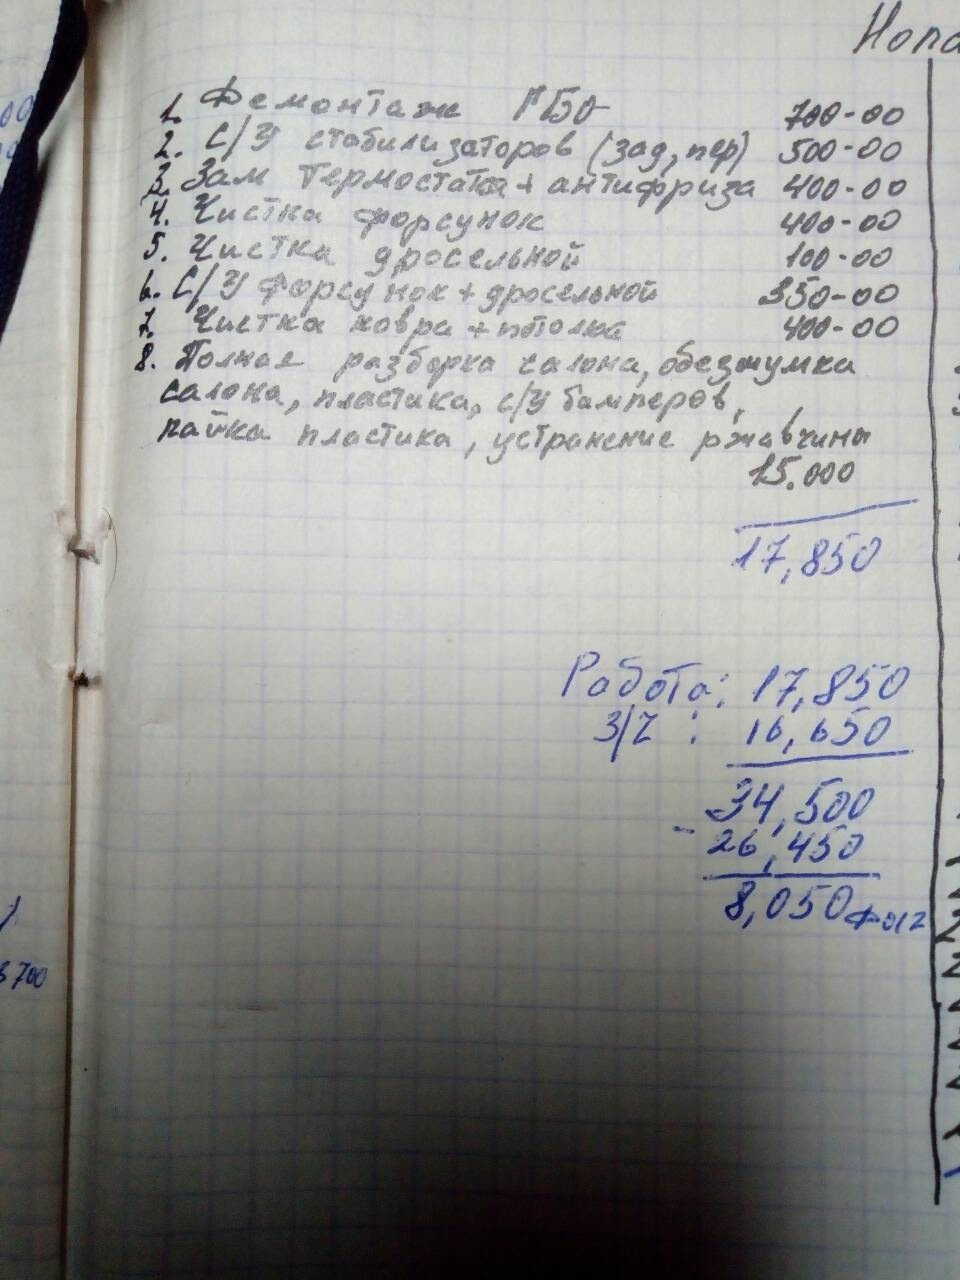 Нопа
1. Демонтаж ГБО 700-00
2. С/У стабилизаторов (зад, пер) 500-00
3. Зам термостата + антифриза 400-00
4. Чистка форсунок 400-00
5. Чистка дросельной 100-00
6. С/У Форсунок + дросельной 350-00
7. Чистка ковра + потолка 400-00
8. Полная разборка салона, обезшумка
салона, пластика, с/у бамперов,
пайка пластика, устранение ржавчины
15.000
17,850
Работа: 17,850
З/Ч : 16,650
34,500
- 26,450
8,050
700